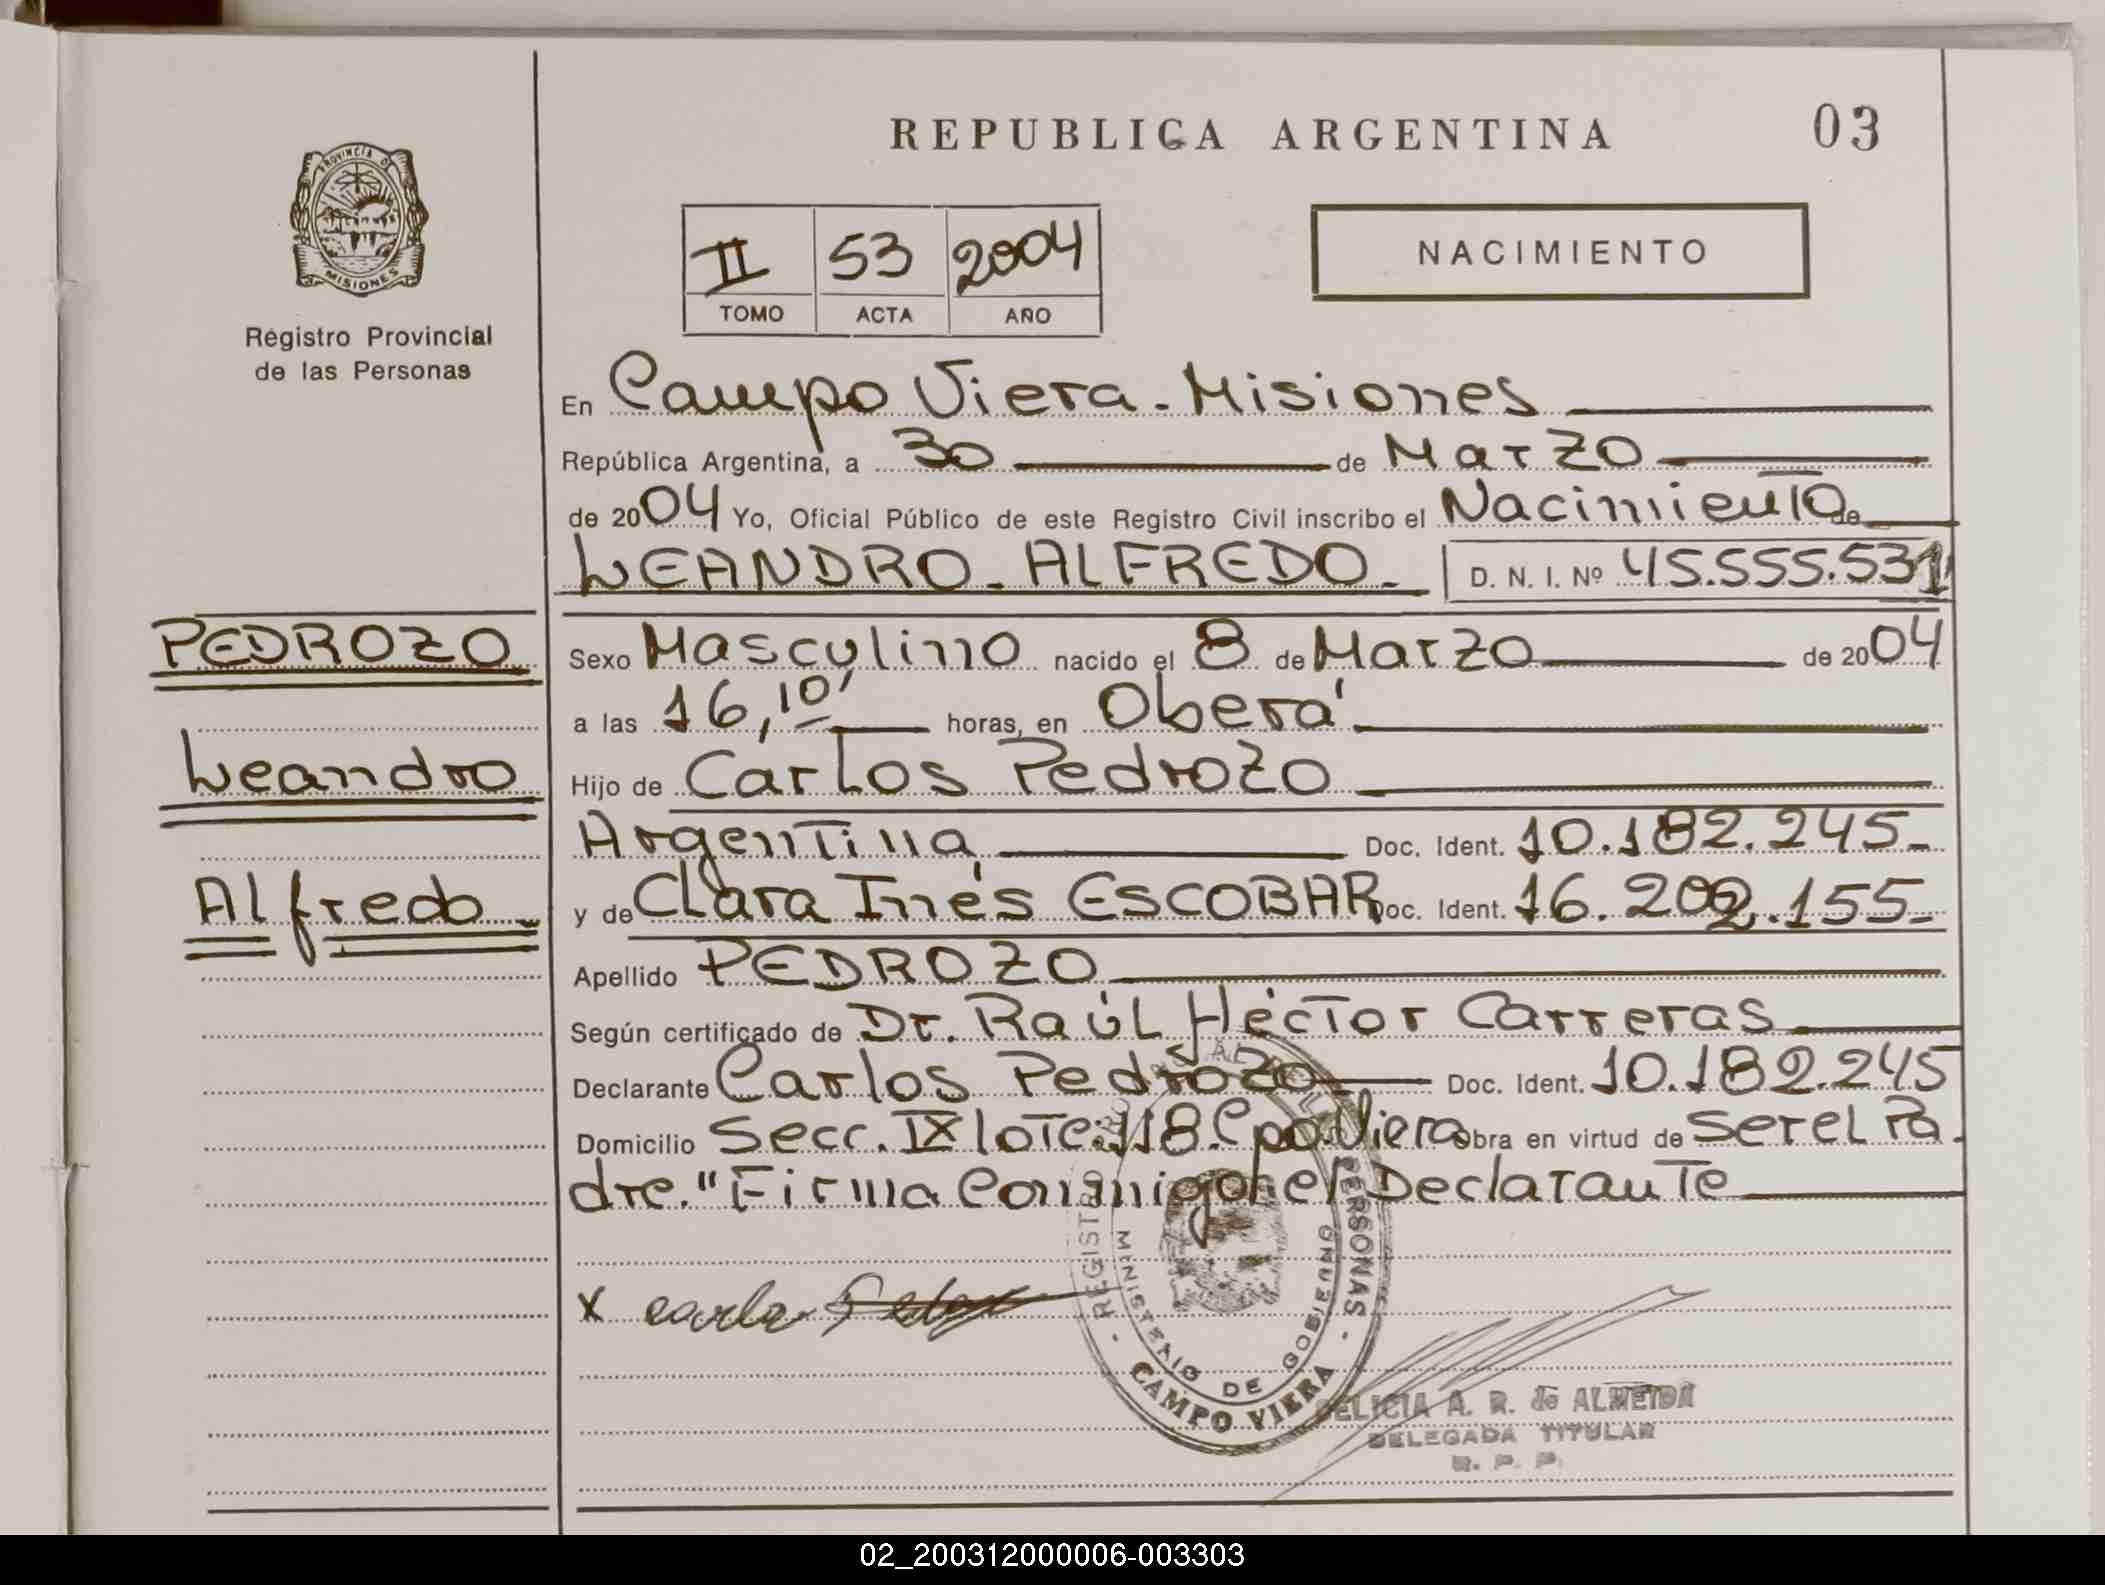 REPUBLICA ARGENTINA
03
PROVINCIA DE MISIONES
Registro Provincial
de las Personas
II 53 2004
TOMO ACTA AÑO
NACIMIENTO
En Campo Viera - Misiones
República Argentina, a 30 de Marzo
de 2004 Yo, Oficial Público de este Registro Civil inscribo el Nacimiento de
LEANDRO - ALFREDO - D. N. I. Nº 45.555.531
PEDROZO
Leandro
Alfredo
Sexo Masculino nacido el 8 de Marzo de 2004
a las 16,10' horas, en Oberá
Hijo de Carlos Pedrozo
Argentina Doc. Ident. 10.182.245-
y de Clara Inés ESCOBAR Doc. Ident. 16.202.155-
Apellido PEDROZO
Según certificado de Dr. Raúl Héctor Carreras
Declarante Carlos Pedrozo Doc. Ident. 10.182.245
Domicilio Secc. IX lote 118 Cpo. Viera obra en virtud de ser el Pa-
dre." Firma Conmigo el Declarante
X
REGISTRO PERSONAS
MINISTERIO DE GOBIERNO
CAMPO VIERA
DELICIA A. R. de ALMEIDA
DELEGADA TITULAR
R. P. P.
02_200312000006-003303